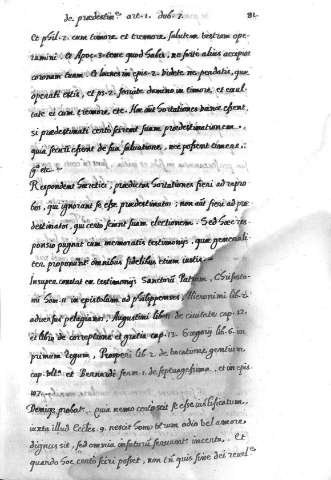 de prædestin.e art. 1. dub. 7. 81.
Et phil. 2. cum timore, et tremore, salutem vestram ope-
ramini. Et Apoc. 3. tene quod habes, ne forte alius accipiat
coronam tuam. et Ioannis in epis. 2. videte ne perdatis, quæ
operati estis, et ps. 2. servite domino in timore, et exul-
tate ei cum tremore, etc. Hæ aut hortationes vanæ essent,
si prædestinati certo scirent suam prædestinationem,
quia securi essent de sua salvatione, nec possent timere,
etc.
Respondent hæretici, prædictas hortationes fieri ad repro-
bos, qui ignorant se esse prædestinatos; non aut fieri ad præ-
destinatos, qui certo sciunt suam electionem. Sed hæc res-
ponsio pugnat cum memoratis testimonijs, quæ generali-
ter proponunt omnibus fidelibus etiam iustis.
Insuper constat ex testimonijs Sanctorum Patrum, Chrisosto-
mi hom. 11 in epistolam ad philippenses, Hieronimi lib. 2.
adversus pelagianos, Augustini libro de civitate cap. 12.
et libro de correptione et gratia cap. 13. Gregorij lib. 6. in
primum Regum, Prosperi lib. 2. de vocatione gentium
cap. ult. et Bernardi serm. 1. de septuagesima, et in epis.
107.
Denique probat. quia nemo certo scit se esse iustificatum,
iuxta illud Eccles. 9. nescit homo utrum odio vel amore
dignus sit, sed omnia in futurum servantur incerta. Et
quando hoc certo sciri posset, non tn quis sine dei revel.e